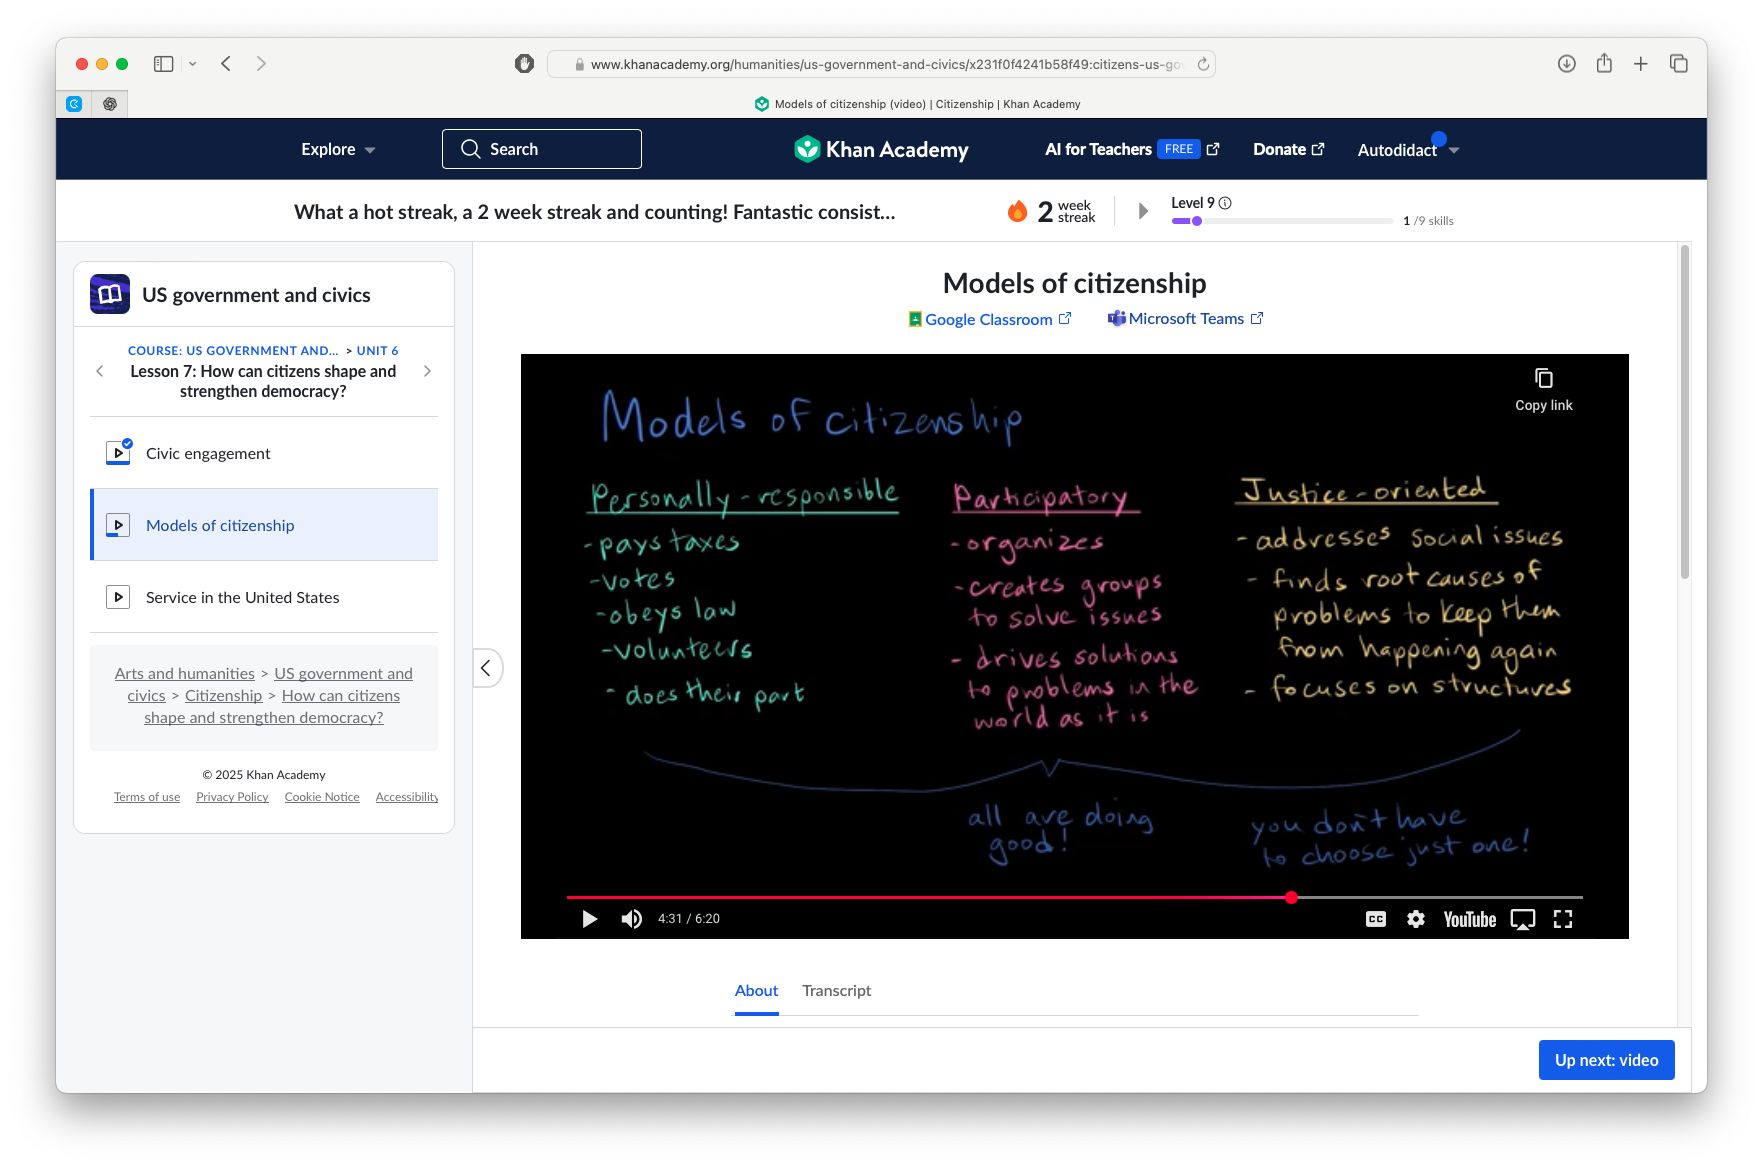 www.khanacademy.org/humanities/us-government-and-civics/x231f0f4241b58f49:citizens-us-gov
Models of citizenship (video) | Citizenship | Khan Academy
Explore
Search
Khan Academy
AI for Teachers FREE
Donate
Autodidact
What a hot streak, a 2 week streak and counting! Fantastic consist...
2 week streak
Level 9
1 /9 skills
US government and civics
COURSE: US GOVERNMENT AND... > UNIT 6
Lesson 7: How can citizens shape and
strengthen democracy?
Civic engagement
Models of citizenship
Service in the United States
Arts and humanities > US government and
civics > Citizenship > How can citizens
shape and strengthen democracy?
© 2025 Khan Academy
Terms of use Privacy Policy Cookie Notice Accessibility
Models of citizenship
Google Classroom
Microsoft Teams
Copy link
Models of citizenship
Personally-responsible
- pays taxes
- votes
- obeys law
- volunteers
- does their part
Participatory
- organizes
- creates groups
to solve issues
- drives solutions
to problems in the
world as it is
Justice-oriented
- addresses social issues
- finds root causes of
problems to keep them
from happening again
- focuses on structures
all are doing
good!
you don't have
to choose just one!
4:31 / 6:20
CC
YouTube
About
Transcript
Up next: video